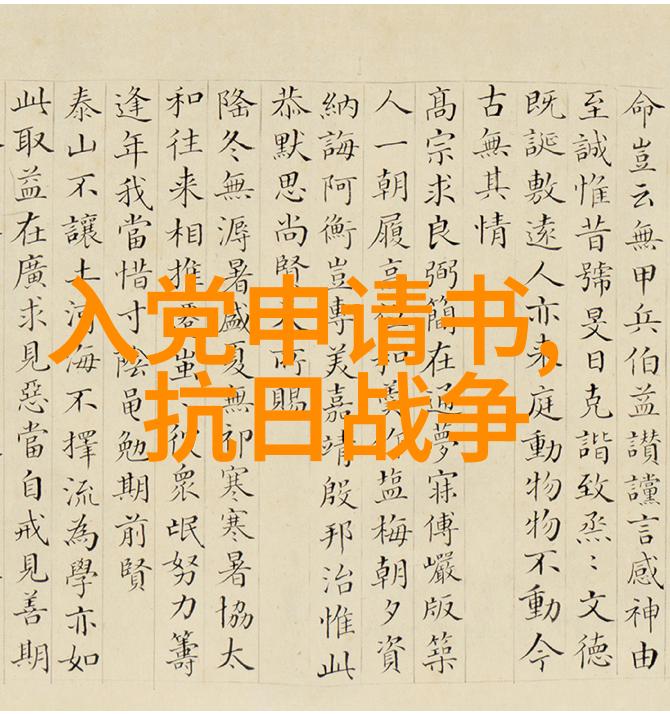 入党申请书,
抗日战争
命豈云無甲兵伯益讃讜言感神由
至誠惟昔號旻日克諧致烝〻文德
既誕敷遠人亦来庭動物物不動今
古無其情
高宗求良弼簡在通夢寐傅嚴版築
人一朝履
納誨阿衡豈專美嘉靖殷邦治惟此
恭默思尚賢
隆冬無溽暑盛夏無祁寒寒暑協太
和往来相推
逢年我當惜寸陰黽勉期前賢
泰山不讓土河海不擇流為學亦如
此取益在廣求見惡當自戒見善期